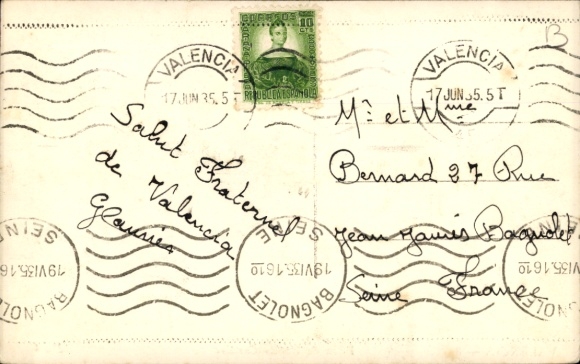 B
CORREOS
10
CTS
REPUBLICA ESPAÑOLA
VALENCIA
17 JUN 35. 5 T
VALENCIA
17 JUN 35. 5 T
Salut Fraternel
de Valencia
Mr et Mme
Bernard 27 Rue
Jean Jaurès Bagnolet
Seine France
SEINE
19 VI 35. 16 10
BAGNOLET
SEINE
19 VI 35. 16 10
BAGNOLET
19 VI 35. 16 10
BAGNOLET